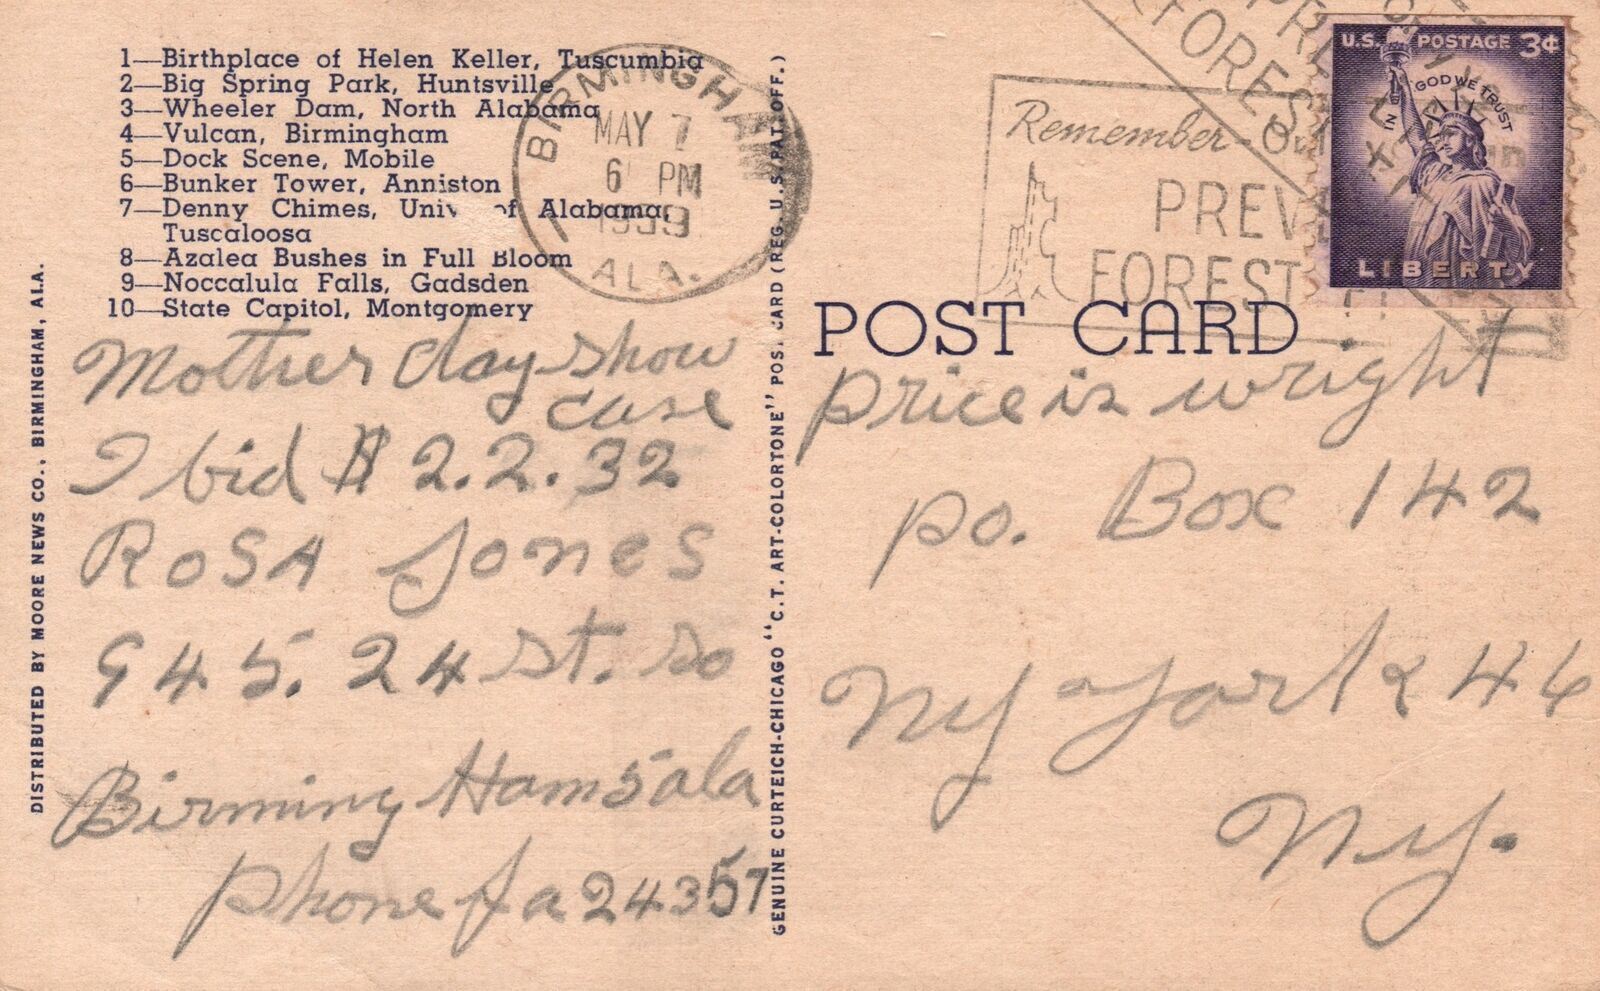 1—Birthplace of Helen Keller, Tuscumbia
2—Big Spring Park, Huntsville
3—Wheeler Dam, North Alabama
4—Vulcan, Birmingham
5—Dock Scene, Mobile
6—Bunker Tower, Anniston
7—Denny Chimes, Univ. of Alabama,
Tuscaloosa
8—Azalea Bushes in Full Bloom
9—Noccalula Falls, Gadsden
10—State Capitol, Montgomery
BIRMINGHAM
MAY 7
6 PM
1959
ALA.
Mother day show
case
I bid $ 2.2.32
ROSA Jones
945. 24 st. so
Birming Ham 5 ala
phone fa 24357
DISTRIBUTED BY MOORE NEWS CO., BIRMINGHAM, ALA.
GENUINE CURTEICH-CHICAGO "C.T. ART-COLORTONE" POST CARD (REG. U.S. PAT. OFF.)
Remember - Our
PREV
FOREST
U.S. POSTAGE 3¢
IN GOD WE TRUST
LIBERTY
POST CARD
price is wright
po. Box 142
Ny York 46
Ny.